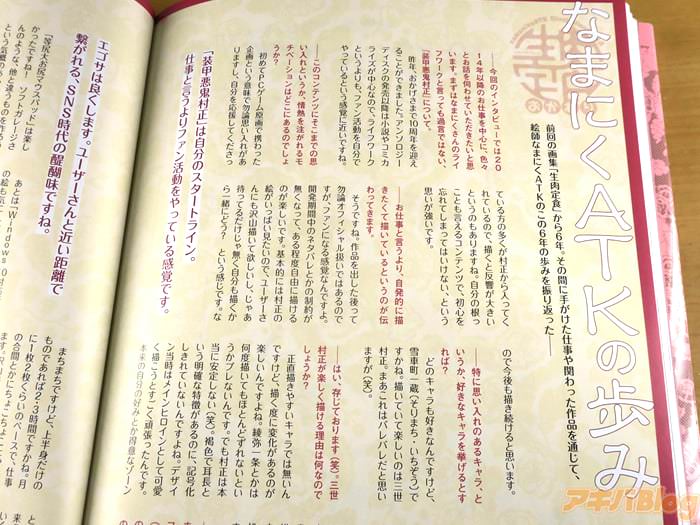 なまにくATKの歩み
前回の画集「生肉定食」から6年。その間に手がけた仕事や関わった作品を通じて、
絵師なまにくATKのこの6年の歩みを振り返った――
――今回のインタビューでは20
14年以降のお仕事を中心に、色々
とお話を伺わせていただきたいと思
います。まずはなまにくさんのライ
フワークと言っても過言ではない、
「装甲悪鬼村正」について。
昨年、おかげさまで10周年を迎え
ることができました。アンソロジー
ディスクの発売以降は小説やコミカ
ライズが中心なので、ライフワーク
というよりも、ファン活動を自分で
やっているという感覚に近いですね。
――このコンテンツにそこまでの思
い入れというか、情熱を注がれるモ
チベーションはどこにあるのでしょ
うか?
初めてPCゲーム原画で携わった
企画という意味で勿論思い入れがあ
りますし、自分を応援してくださっ
ている方の多くが村正から入ってく
れているので、描くと反響が大きい
というのもありますね。自分の根っ
ことも言えるコンテンツで、初心を
忘れてしまってはいけない、という
思いが強いです。
――お仕事と言うより、自発的に描
きたくて描いているというのが伝
わってきます。
そうですね。作品を出した後って
勿論オフィシャル扱いではあるので
すが、ファンになる感覚なんですよ。
開発期間中のネタバレとかの制約が
無くなって、ある程度自由に描ける
のが楽しいです。基本的には村正の
絵がいっぱい見たいので、ユーザーさ
んにも沢山描いて欲しいし、じゃあ
待ってるだけじゃ無く自分も描くか
ら一緒にどう? という感じです。な
ので今後も描き続けると思います。
――特に思い入れのあるキャラ、と
いうか、好きなキャラを挙げるとす
れば?
どのキャラも好きなんですけど、
雪車町一蔵(そりまち・いちぞう)で
すかね。描いていて楽しいのは三世
村正。まあこれはバレバレだと思い
ますが(笑)。
――はい、存じております(笑)。三世
村正が楽しく描ける理由は何なので
しょうか?
正直描きやすいキャラでは無いん
ですけど、描く度に変化があるのが
楽しいんですよね。綾弥一条とかは
何度描いてもほとんどずれないとい
うかブレないんです。でも村正は本
当に安定しない(笑)。褐色で耳長と
いう明確な特徴があるのに、記号化
しきれていないんですよね。デザイ
ン当時はメインヒロインとして可愛
く描こうとすごく頑張ったんです。
本来の自分の好みとか得意なゾーン
「装甲悪鬼村正」は自分のスタートライン。
仕事と言うよりファン活動をやっている感覚です。
エゴサは良くします。ユーザーさんと近い距離で
繋がれる、SNS時代の醍醐味ですね。
「等尻大お尻マウスパッド」は楽し
かったですね! ソフトガレージさ
んのような、他と違うものを作ろう
あとは「Windows 10
まちまちですけど、上半身だけの
ものであれば2・3時間ですかね。月
に1枚2枚くらいのペースで、仕事
の合間とかにちょこちょこ
アキバBlog